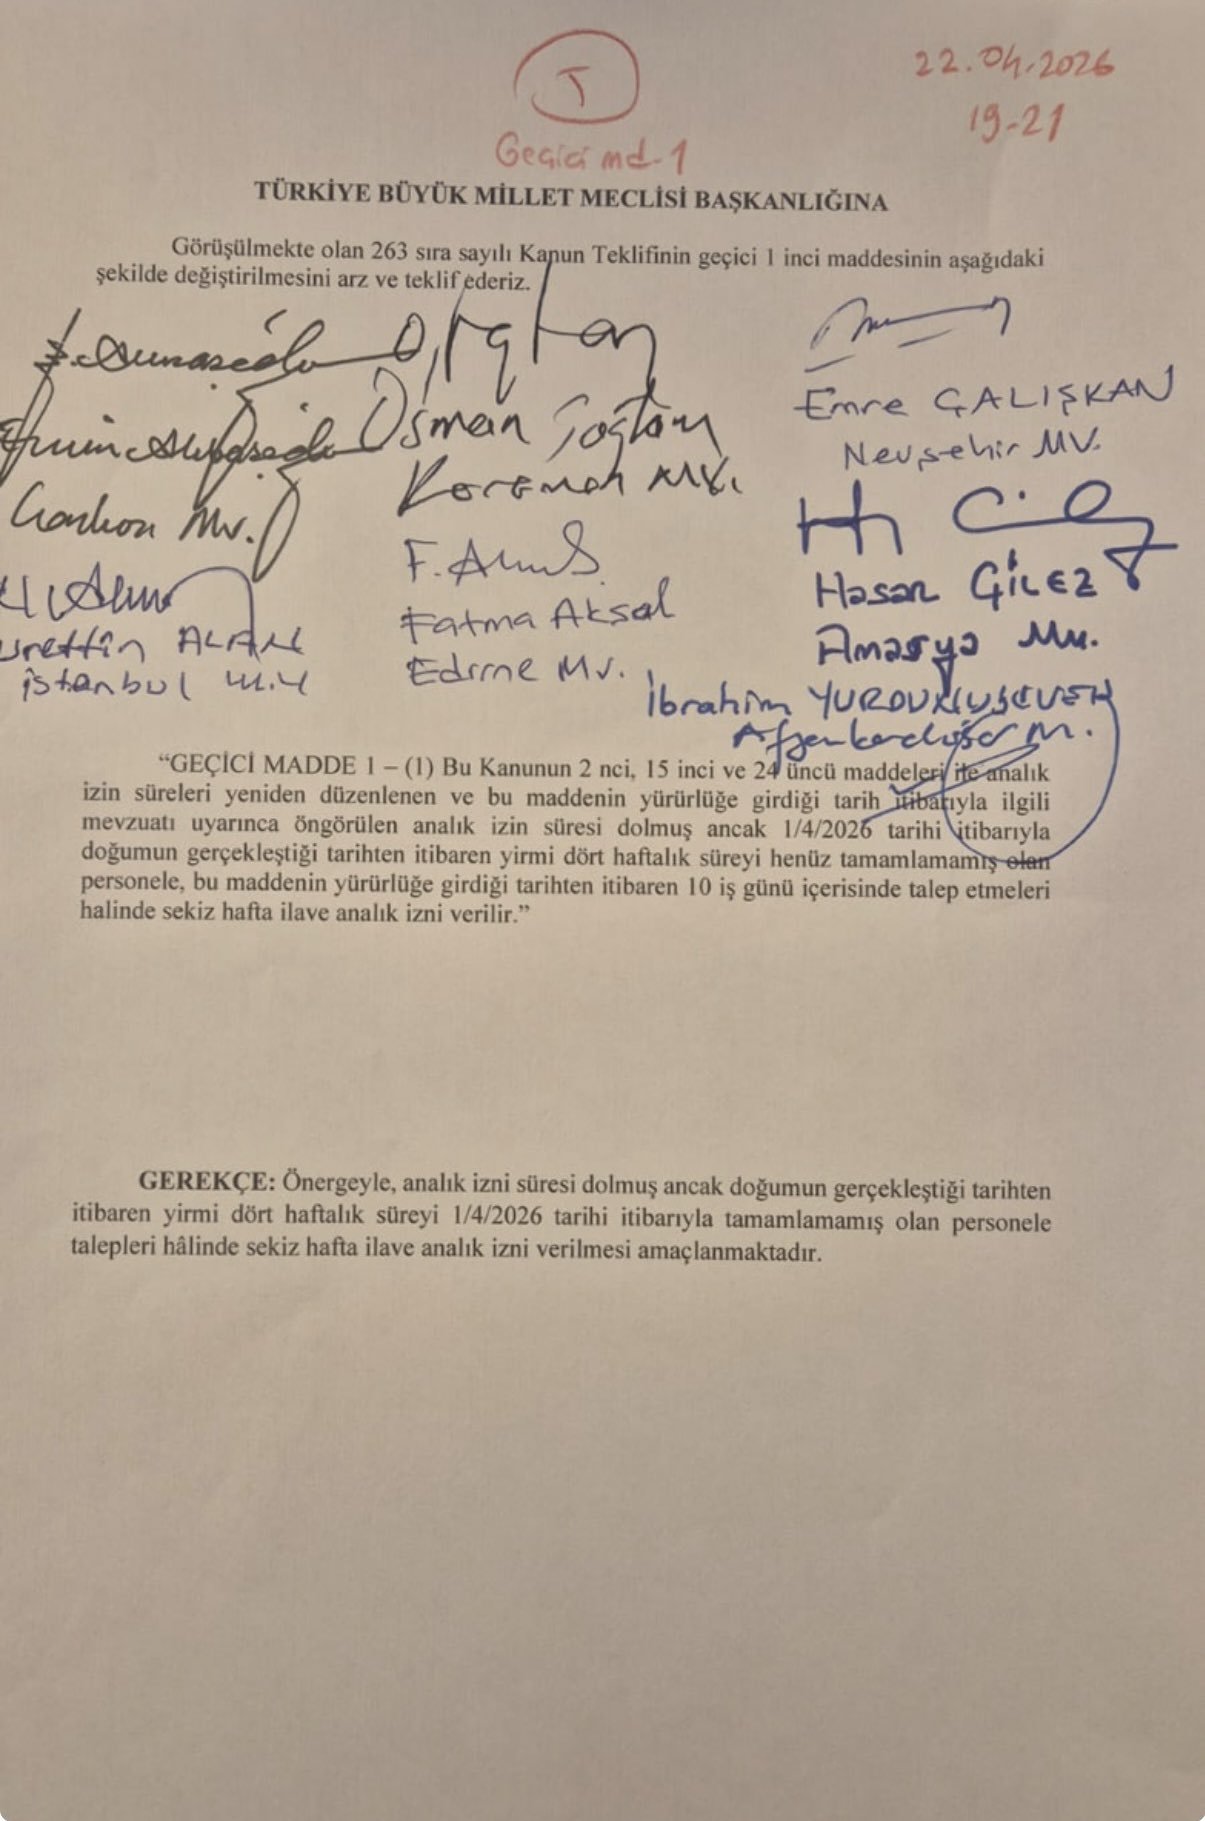 T
22.04.2026
19-21
Geçici md-1
TÜRKİYE BÜYÜK MİLLET MECLİSİ BAŞKANLIĞINA
Görüşülmekte olan 263 sıra sayılı Kanun Teklifinin geçici 1 inci maddesinin aşağıdaki
şekilde değiştirilmesini arz ve teklif ederiz.
Emre ÇALIŞKAN
Nevşehir MV.
Osman
Karaman MV.
Mv.
Hasan ÇİLEZ
Amasya Mv.
F.
Fatma Aksal
Edirne Mv.
ALAN
istanbul
İbrahim
"GEÇİCİ MADDE 1 – (1) Bu Kanunun 2 nci, 15 inci ve 24 üncü maddeleri ile analık
izin süreleri yeniden düzenlenen ve bu maddenin yürürlüğe girdiği tarih itibarıyla ilgili
mevzuatı uyarınca öngörülen analık izin süresi dolmuş ancak 1/4/2026 tarihi itibarıyla
doğumun gerçekleştiği tarihten itibaren yirmi dört haftalık süreyi henüz tamamlamamış olan
personele, bu maddenin yürürlüğe girdiği tarihten itibaren 10 iş günü içerisinde talep etmeleri
halinde sekiz hafta ilave analık izni verilir."
GEREKÇE: Önergeyle, analık izni süresi dolmuş ancak doğumun gerçekleştiği tarihten
itibaren yirmi dört haftalık süreyi 1/4/2026 tarihi itibarıyla tamamlamamış olan personele
talepleri hâlinde sekiz hafta ilave analık izni verilmesi amaçlanmaktadır.